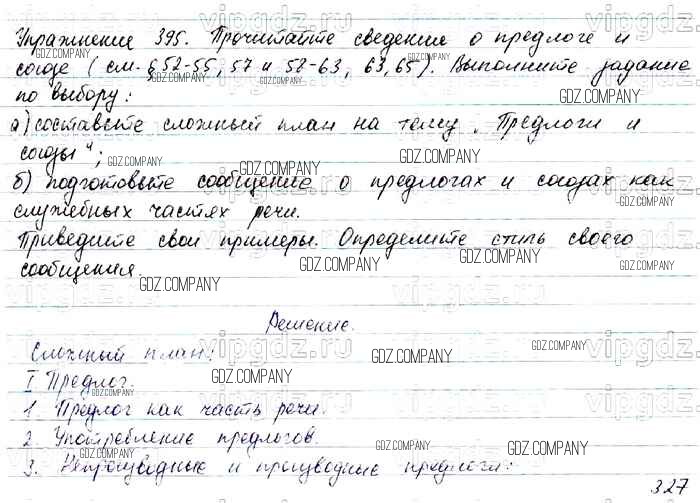 Упражнение 395. Прочитайте сведение о предлоге и
союзе (см. §52-55, 57 и 58-63, 63,65). Выполните задание
по выбору:
а) составьте сложный план на тему „Предлоги и
союзы";
б) подготовьте сообщение о предлогах и союзах как
служебных частях речи.
Приведите свои примеры. Определите стиль своего
сообщения.
Решение.
Сложный план:
I Предлог.
1. Предлог как часть речи.
2. Употребление предлогов.
3. Непроизводные и производные предлоги:
327